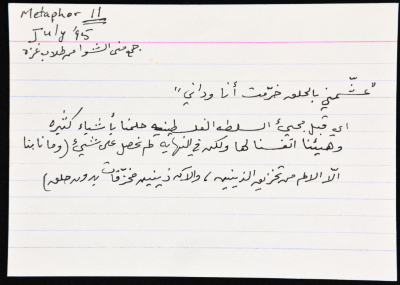 Metaphor 11
July '95
جمع منى الشوا من طلاب غزة
"عشّمني بالحلق خرّمت أنا وداني"
اي قبل مجيئ السلطة الفلسطينية حلمنا بأشياء كثيره
وهيئنا انفسنا لها ولكن في النهاية لم نحصل على شيئ (وما نابنا
الّا الالم من تخزيق الذينين، والآن ذينين مخزّقات بدون حلق)